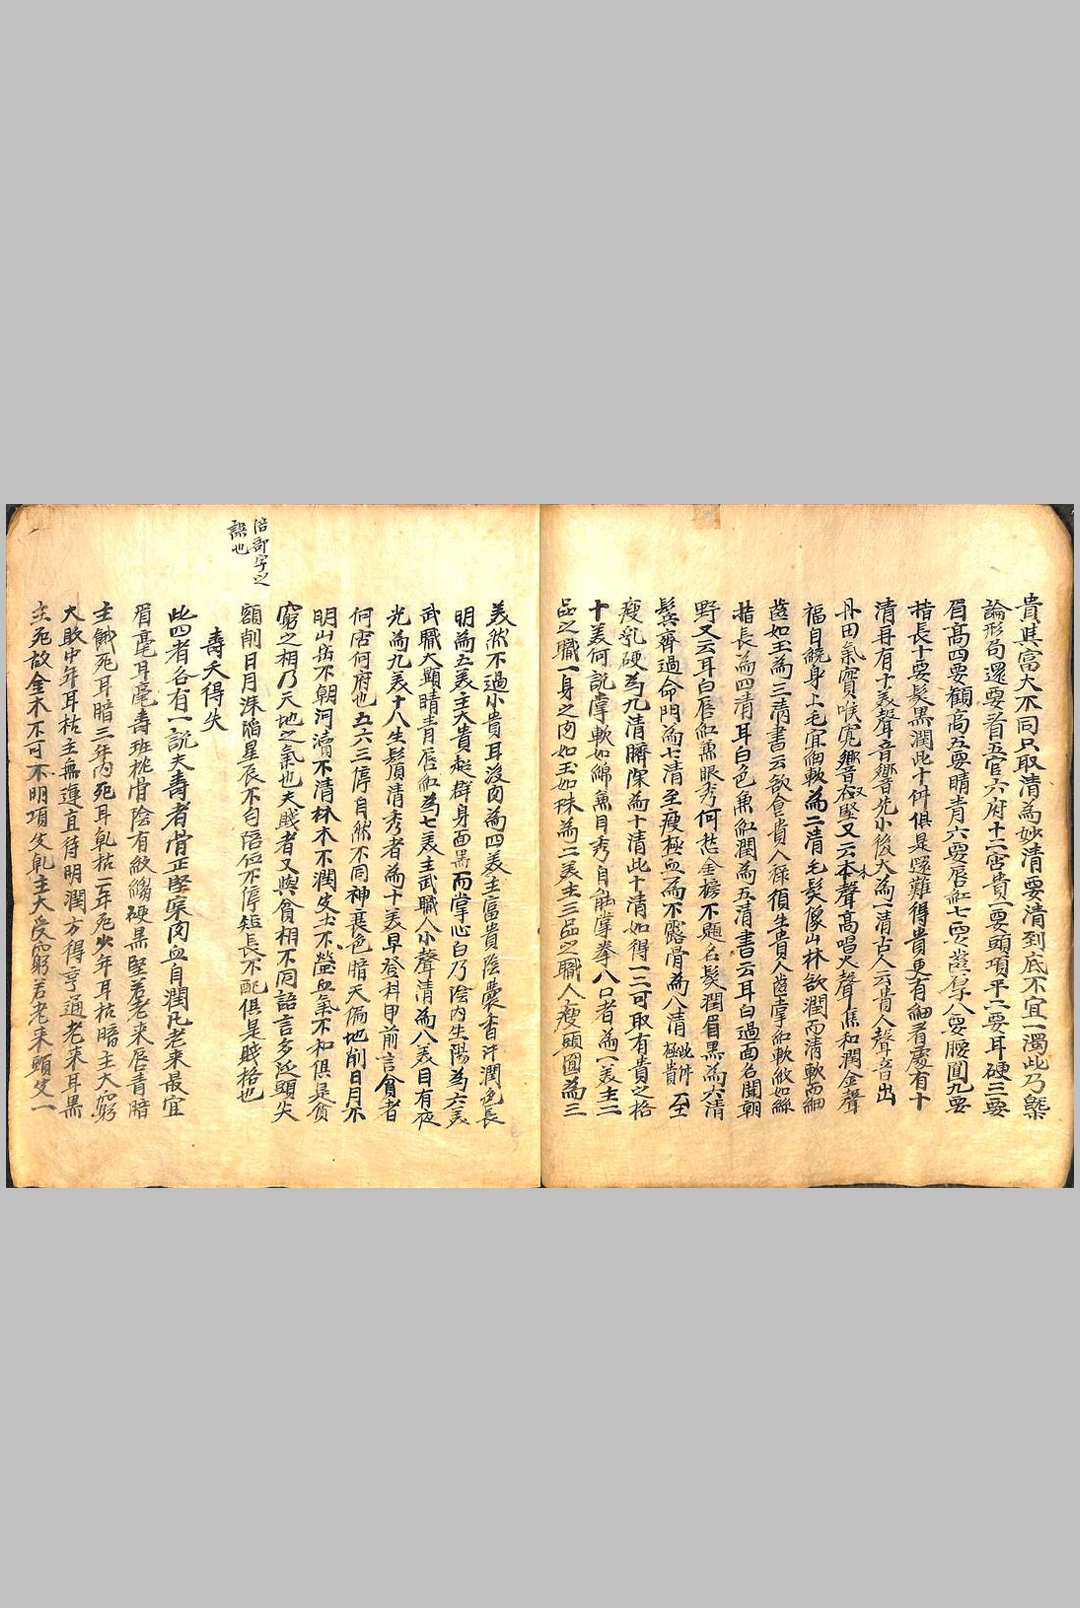 貴其富大不同只取清為妙清要清到底不宜一濁此乃槩
論形局還要看五官六府十二宮貴一要頭項平二要耳硬三要
眉高四要顴高五要睛青六要唇紅七要齒厚八要腰圓九要
指長十要髮黑潤此十件俱是難得貴更有細看處有十
清再有十美聲音響先小後大為一清古人云貴人聲音出
丹田氣實喉寬響音堅又云木聲高唱火聲焦和潤金聲
福自饒身上毛宜細軟為二清毛髮像山林欲潤而清軟而細
齒如玉為三清書云欲食貴人祿須生貴人齒掌紅軟紋如絲
指長為四清耳白色兼紅潤為五清書云耳白過面名聞朝
野又云耳白唇紅兼眼秀何愁金榜不題名髮潤眉黑為六清
鬚齊過命門為七清至瘦極血而不露骨為八清此件極貴至
瘦乳硬為九清臍深為十清此十清如得一二可取有貴之格
十美何說掌軟如綿兼目秀自能掌拳八口者為一美主二
品之職一身之肉如玉如珠為二美主三品之職人瘦頭圓為三
美然不過小貴耳後肉為四美主富貴陰囊香汗潤色長
明為五美主大貴超群身面黑而掌心白乃陰內生陽為六美
武職大顯睛青唇紅為七美主武職人小聲清為八美目有夜
光為九美十八生鬚清秀者為十美早登科甲前言貧者
何宮何府也五六三停自然不同神衰色暗天偏地削日月不
明山岳不朝河瀆不清林木不潤皮土不瑩血氣不和俱是貧
窮之相乃天地之氣也夫賤者又與貧相不同語言多泛頭尖
額削日月深陷星辰不白陪位不停短長不配俱是賤格也
陪部字之
誤也
壽夭得失
此四者各有一說夫壽者骨正堅實肉血自潤凡老來最宜
眉毫耳毫壽班枕骨陰有紋縐硬黑堅若老來唇青暗
主餓死耳暗三年內死耳乾枯一年死少年耳枯暗主大窮
大敗中年耳枯主無運直待明潤方得亨通老來耳黑
主死故金木不可不明項皮乾主大受窮若老來頭皮一